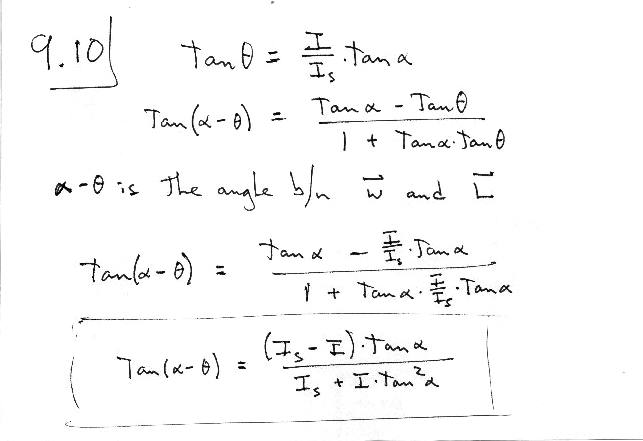 9.10 Tanθ = I/Is · tan α
Tan(α-θ) = (Tan α - Tanθ)/(1 + Tanα·Tanθ)
α-θ is The angle b/n w⃗ and L⃗
tan(α-θ) = (tan α - I/Is · Tan α)/(1 + Tan α · I/Is · Tan α)
Tan(α-θ) = ((Is - I)·tan α)/(Is + I·tan²α)